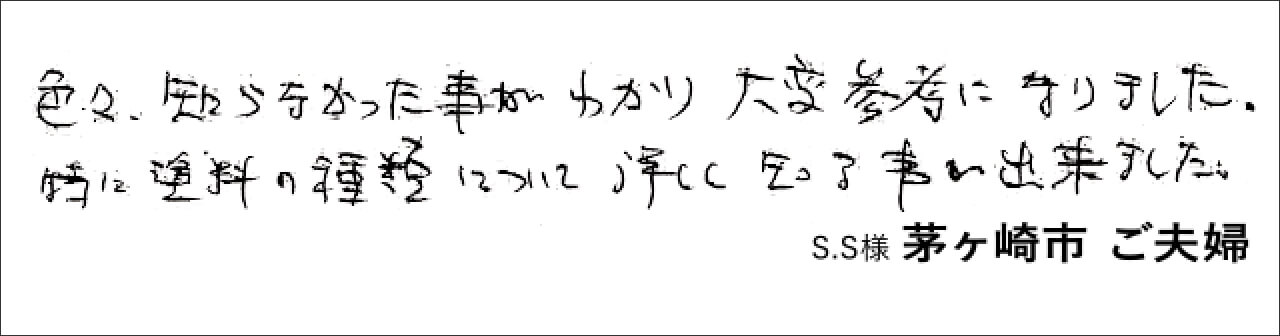 色々、知らなかった事がわかり 大変参考に なりました。
特に塗料の種類について 詳しく知る事が出来ました。
S.S様 茅ヶ崎市 ご夫婦